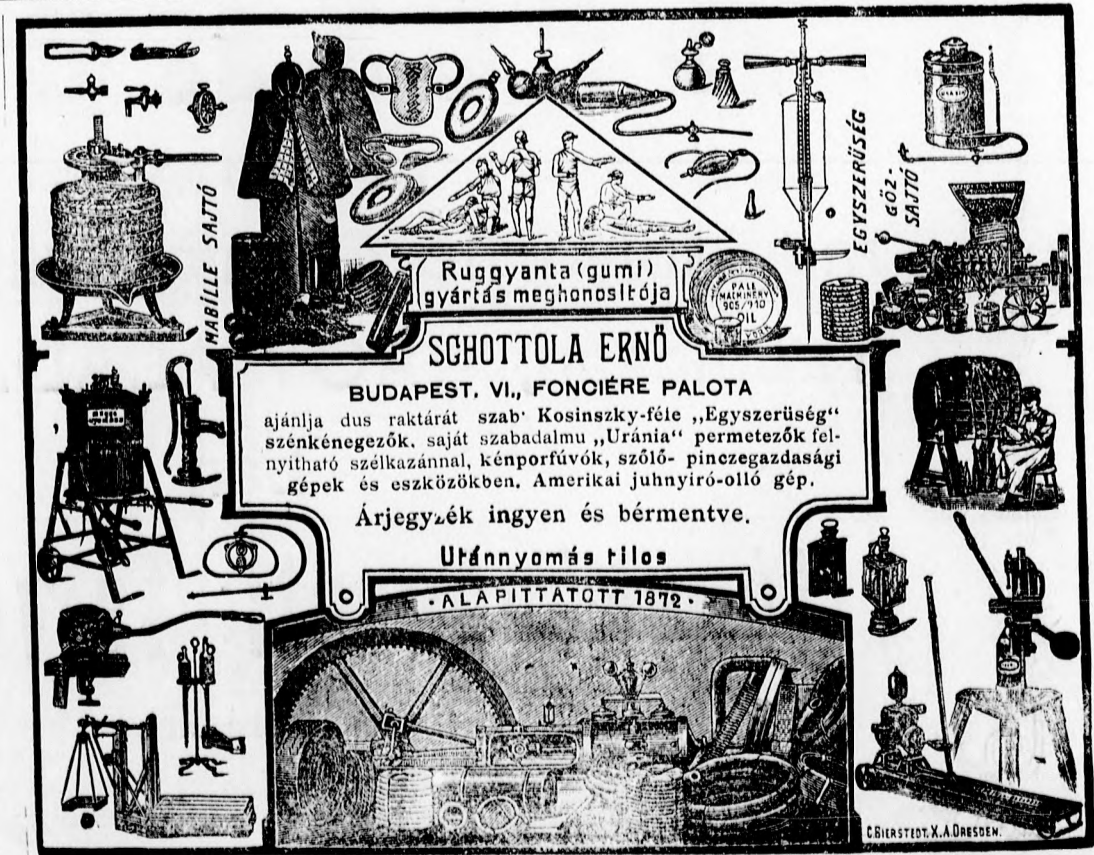 MABILLE SAJTÓ
EGYSZERÜSÉG
GÖZ-
SAJTÓ
Ruggyanta (gumi)
gyártás meghonosítója
PALE
MACHINERY
905/910
OIL
SCHOTTOLA ERNÖ
BUDAPEST. VI., FONCIÉRE PALOTA
ajánlja dus raktárát szab· Kosinszky-féle „Egyszerüség“
szénkénegezők. saját szabadalmu „Uránia“ permetezők fel-
nyitható szélkazánnal, kénporfúvók, szőlő- pinczegazdasági
gépek és eszközökben. Amerikai juhnyiró-olló gép.
Árjegyzék ingyen és bérmentve.
Utánnyomás tilos
· ALAPITTATOTT 1872 ·
C. BIERSTEDT. X. A. DRESDEN.